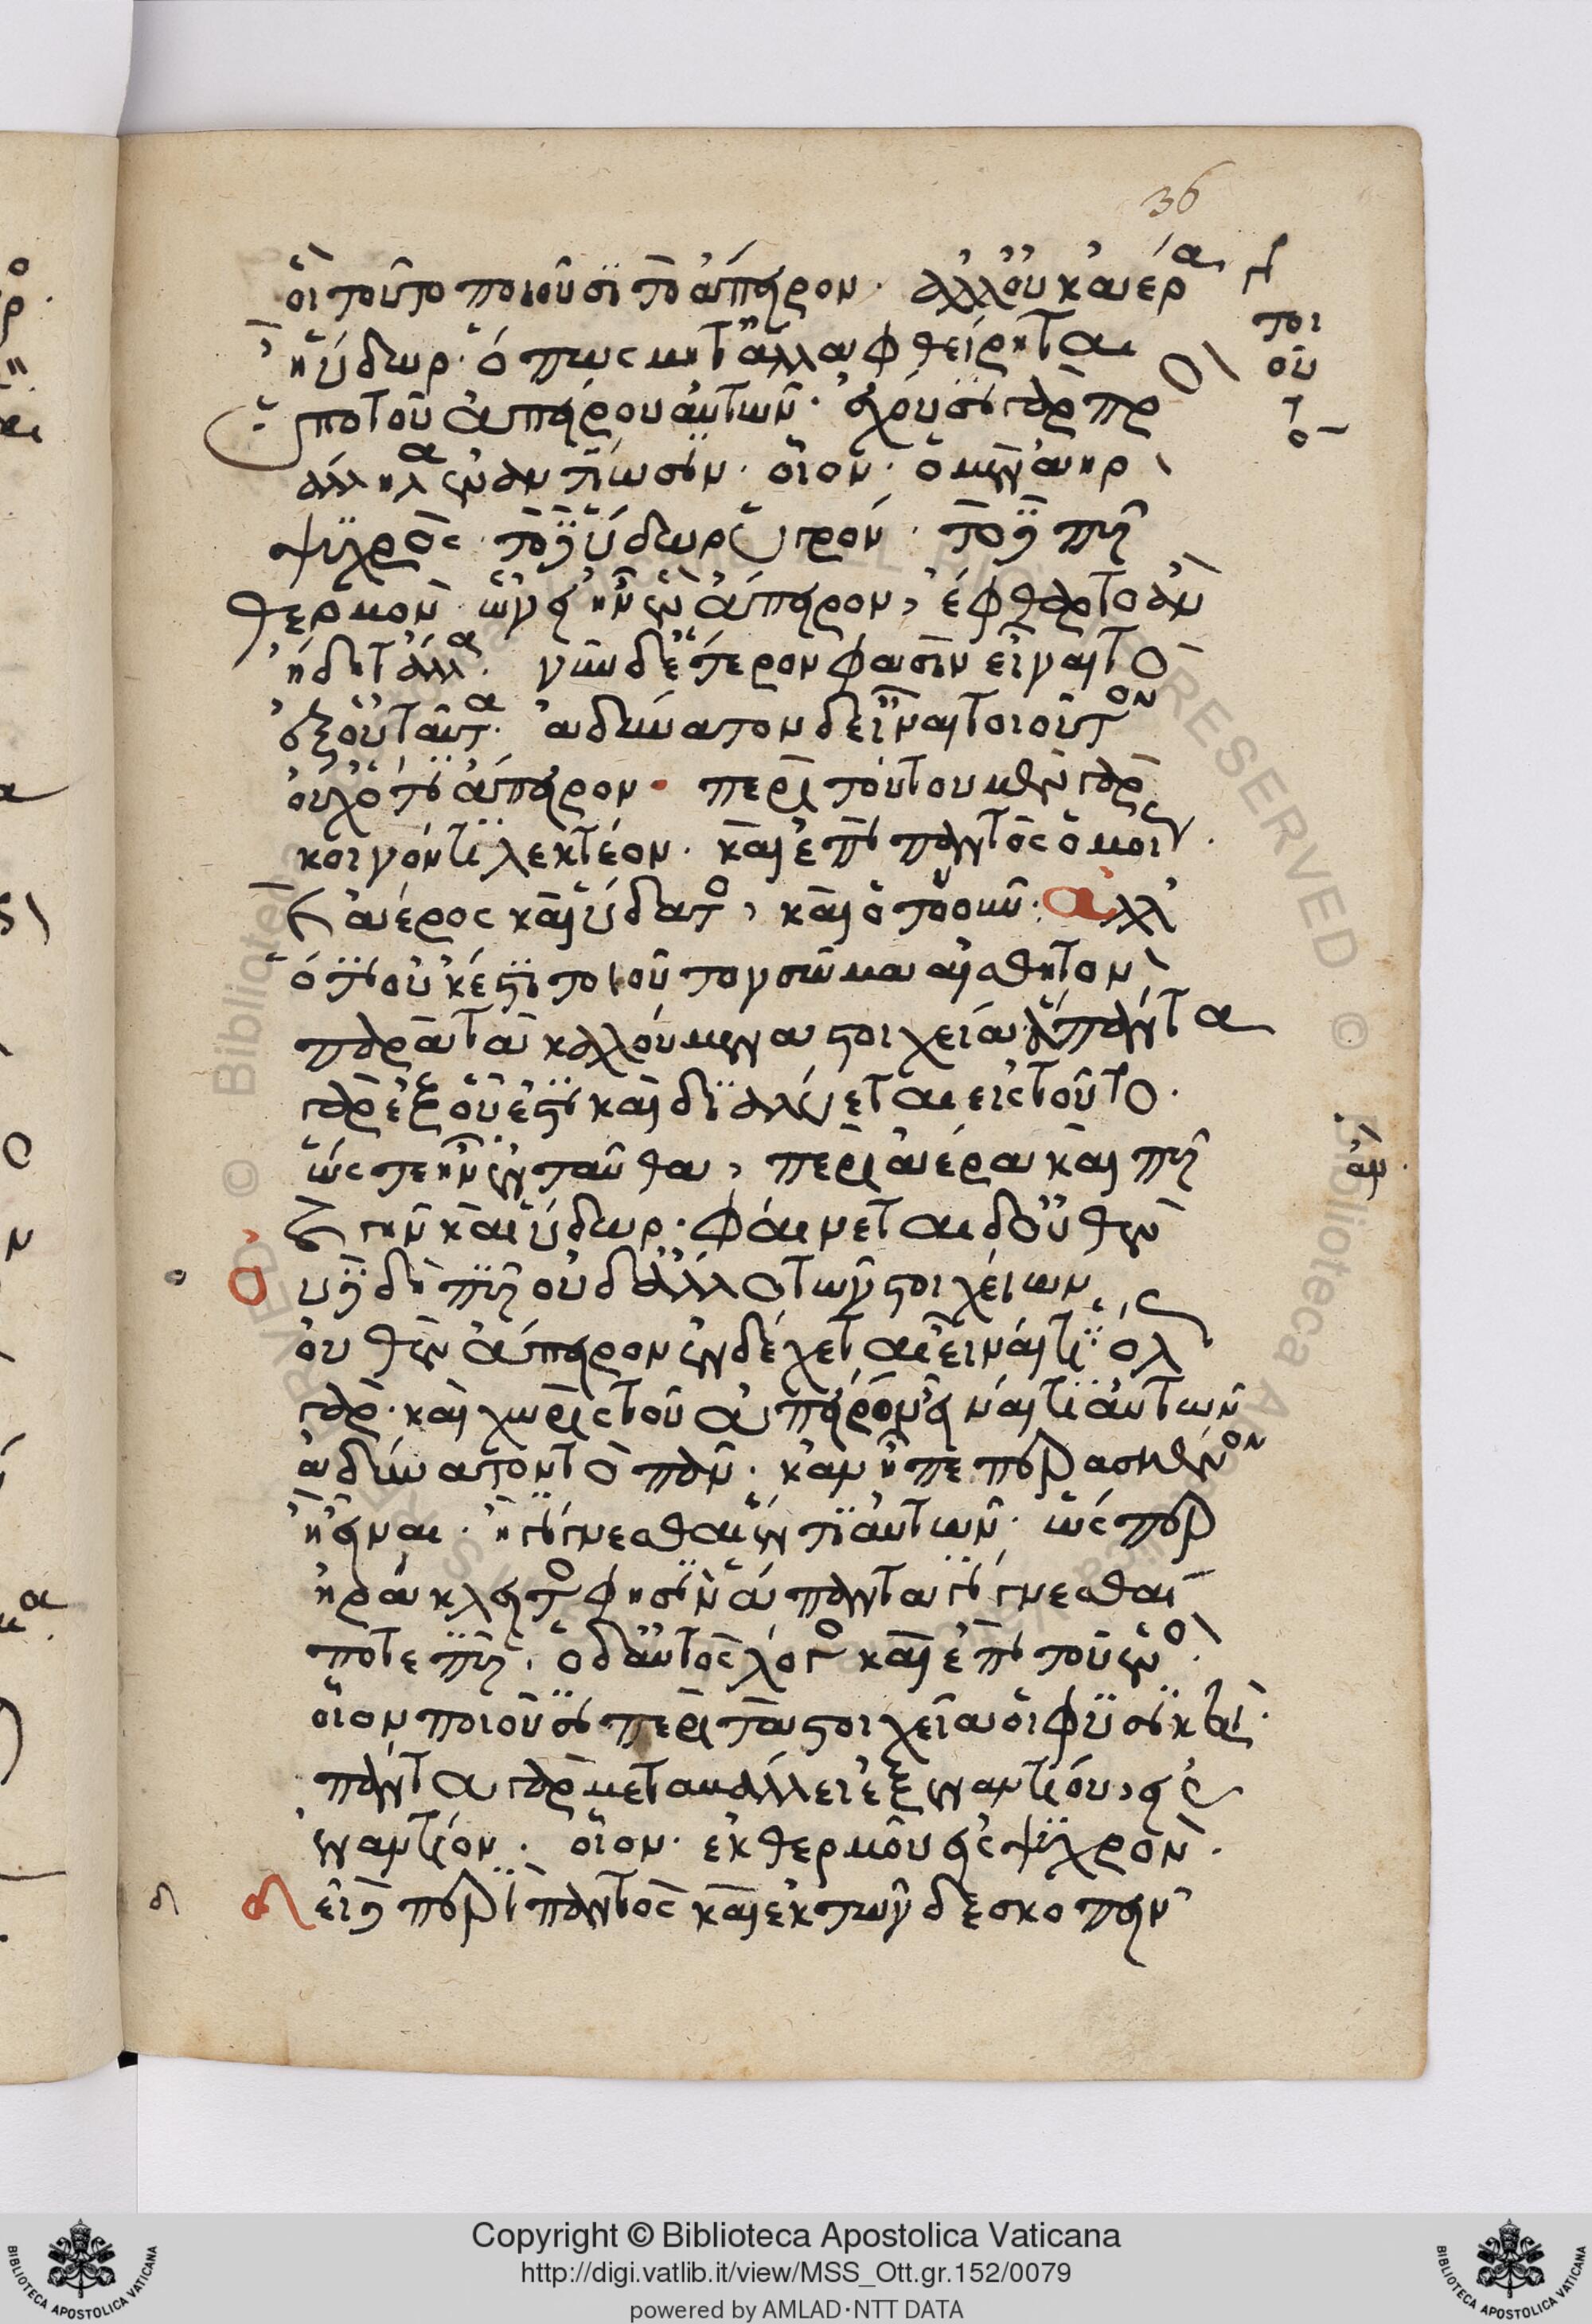 36
οἳ τοῦτο ποιοῦσι τὸ ἄπειρον. ἀλλ' οὐκ ἀέρα
ἢ ὕδωρ. ὅπως μὴ τἄλλα φθείρηται
ὑπὸ τοῦ ἀπείρου αὐτῶν. ἔχουσι γὰρ πρὸς
ἄλληλα ἐναντίωσιν. οἷον. ὁ μὲν ἀὴρ
ψυχρὸς. τὸ δ' ὕδωρ ὑγρόν. τὸ δὲ πῦρ
θερμὸν. ὧν εἰ ἦν ἓν ἄπειρον, ἔφθαρτο ἂν
ἤδη τἄλλα. νῦν δ' ἕτερον φασὶν εἶναι τὸ
ἐξ οὗ ταῦτα. ἀδύνατον δ' εἶναι τοιοῦτον
οὐχ ὅτι ἄπειρον. περὶ τούτου μὲν γὰρ
κοινόν τι λεκτέον. καὶ ἐπὶ παντὸς ὁμοίως.
καὶ ἀέρος καὶ ὕδατος, καὶ ὁτουοῦν. ἀλλ'
ὅτι οὐκ ἔστι τοιοῦτον σῶμα αἰσθητὸν
παρὰ τὰ καλούμενα στοιχεῖα. ἅπαντα
γὰρ ἐξ οὗ ἐστι καὶ διαλύεται εἰς τοῦτο.
ὥστε ἦν ἐνταῦθα, περὶ ἀέρα καὶ πῦρ
καὶ γῆν καὶ ὕδωρ. φαίνεται δ' οὐθὲν
ο οὐδὲ δὴ πῦρ οὐδ' ἄλλο τῶν στοιχείων
οὐθὲν ἄπειρον ἐνδέχεται εἶναί τι. ὅλως
γὰρ. καὶ χωρὶς τοῦ ἄπειρον εἶναί τι αὐτῶν
ἀδύνατον τὸ πᾶν. κἂν ἦ πεπερασμένον
ἢ εἶναι. ἢ γίγνεσθαι ἕν τι αὐτῶν. ὥσπερ
ἡράκλειτος φησὶν ἅπαντα γίγνεσθαί
ποτε πῦρ. ὁ δ' αὐτὸς λόγος καὶ ἐπὶ τοῦ ἑνὸς.
οἷον ποιοῦσι περὶ τὰ στοιχεῖα οἱ φυσικοί.
πάντα γὰρ μεταβάλλει ἐξ ἐναντίου, εἰς
ἐναντίον. οἷον. ἐκ θερμοῦ εἰς ψυχρὸν.
δ δεῖ δὲ περὶ παντὸς καὶ ἐκ τῶνδε σκοπεῖν
Copyright © Biblioteca Apostolica Vaticana
http://digi.vatlib.it/view/MSS_Ott.gr.152/0079
powered by AMLAD·NTT DATA